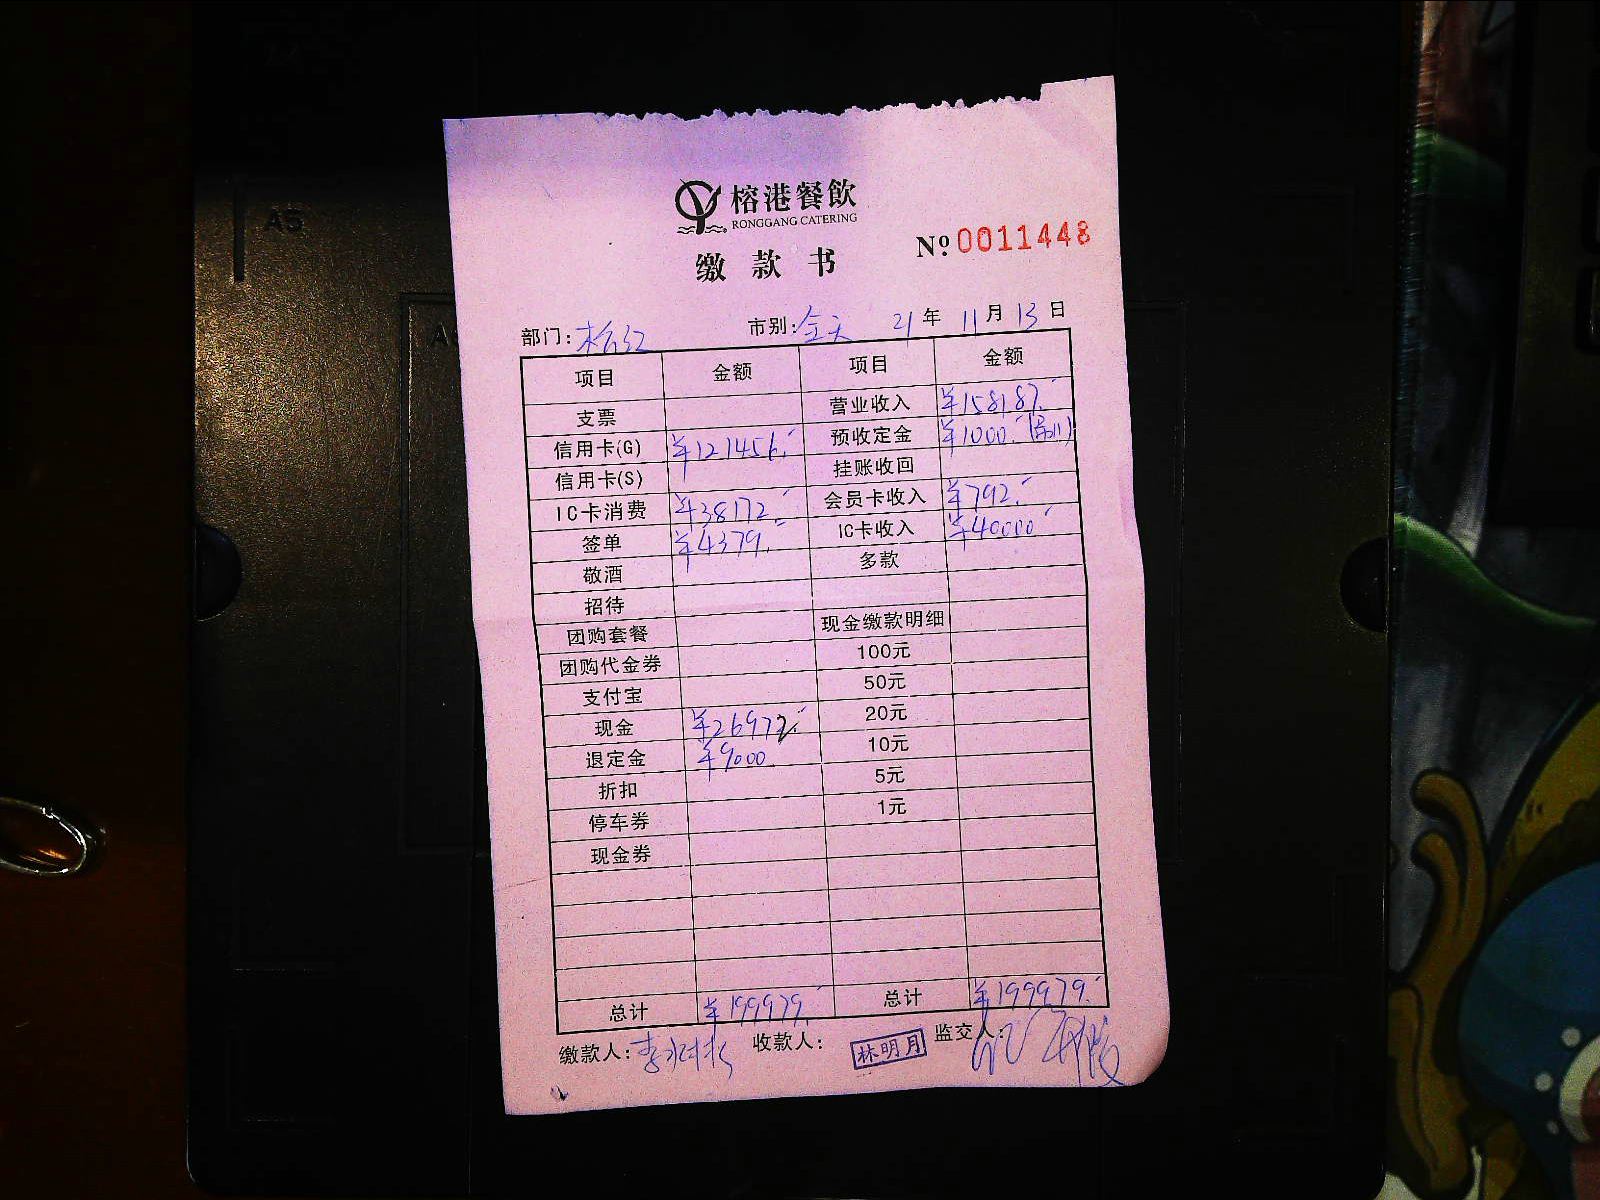 榕港餐飲
RONGGANG CATERING
缴款书
№ 0011448
部门: 市别: 全天 21 年 11 月 13 日
项目 金额 项目 金额
支票 营业收入 ¥158187.-
信用卡(G) ¥121456.- 预收定金 ¥1000.-
信用卡(S) 挂账收回
IC卡消费 ¥38172.- 会员卡收入 ¥792.-
签单 ¥4379.- IC卡收入 ¥40000.-
敬酒 多款
招待
团购套餐 现金缴款明细
团购代金券 100元
支付宝 50元
现金 ¥26972.- 20元
退定金 ¥9000. 10元
折扣 5元
停车券 1元
现金券
总计 ¥199979.- 总计 ¥199979.-
缴款人: 收款人: 林明月 监交人:
A5